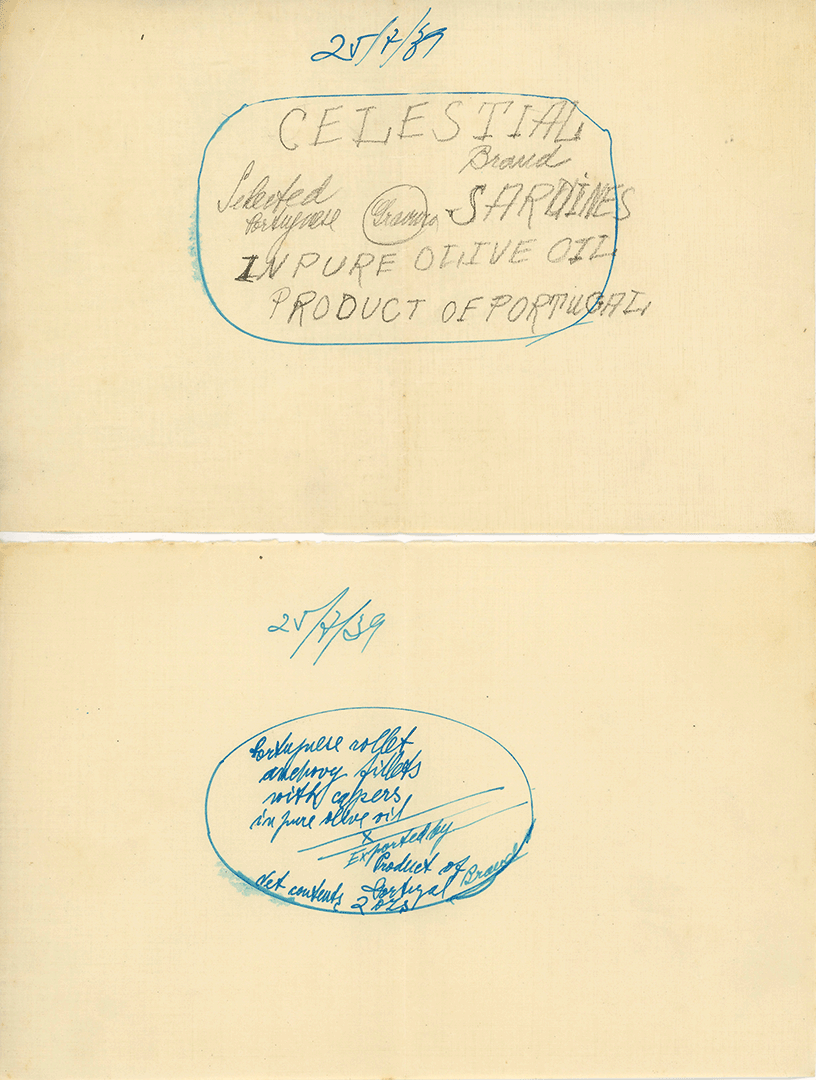 25/7/39
CELESTIAL
Brand
Selected
Portuguese
Gravura
SARDINES
IN PURE OLIVE OIL
PRODUCT OF PORTUGAL
25/7/39
Portuguese rollet
anchovy fillets
with capers
in pure olive oil
X
Exported by
Product of
Brand
Net contents Portugal
2 ozs